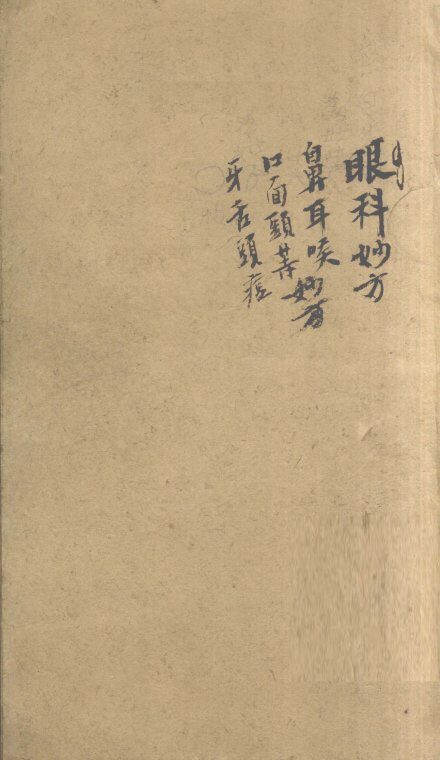 眼科妙方
鼻耳喉妙方
口面頸等
牙舌頭痘